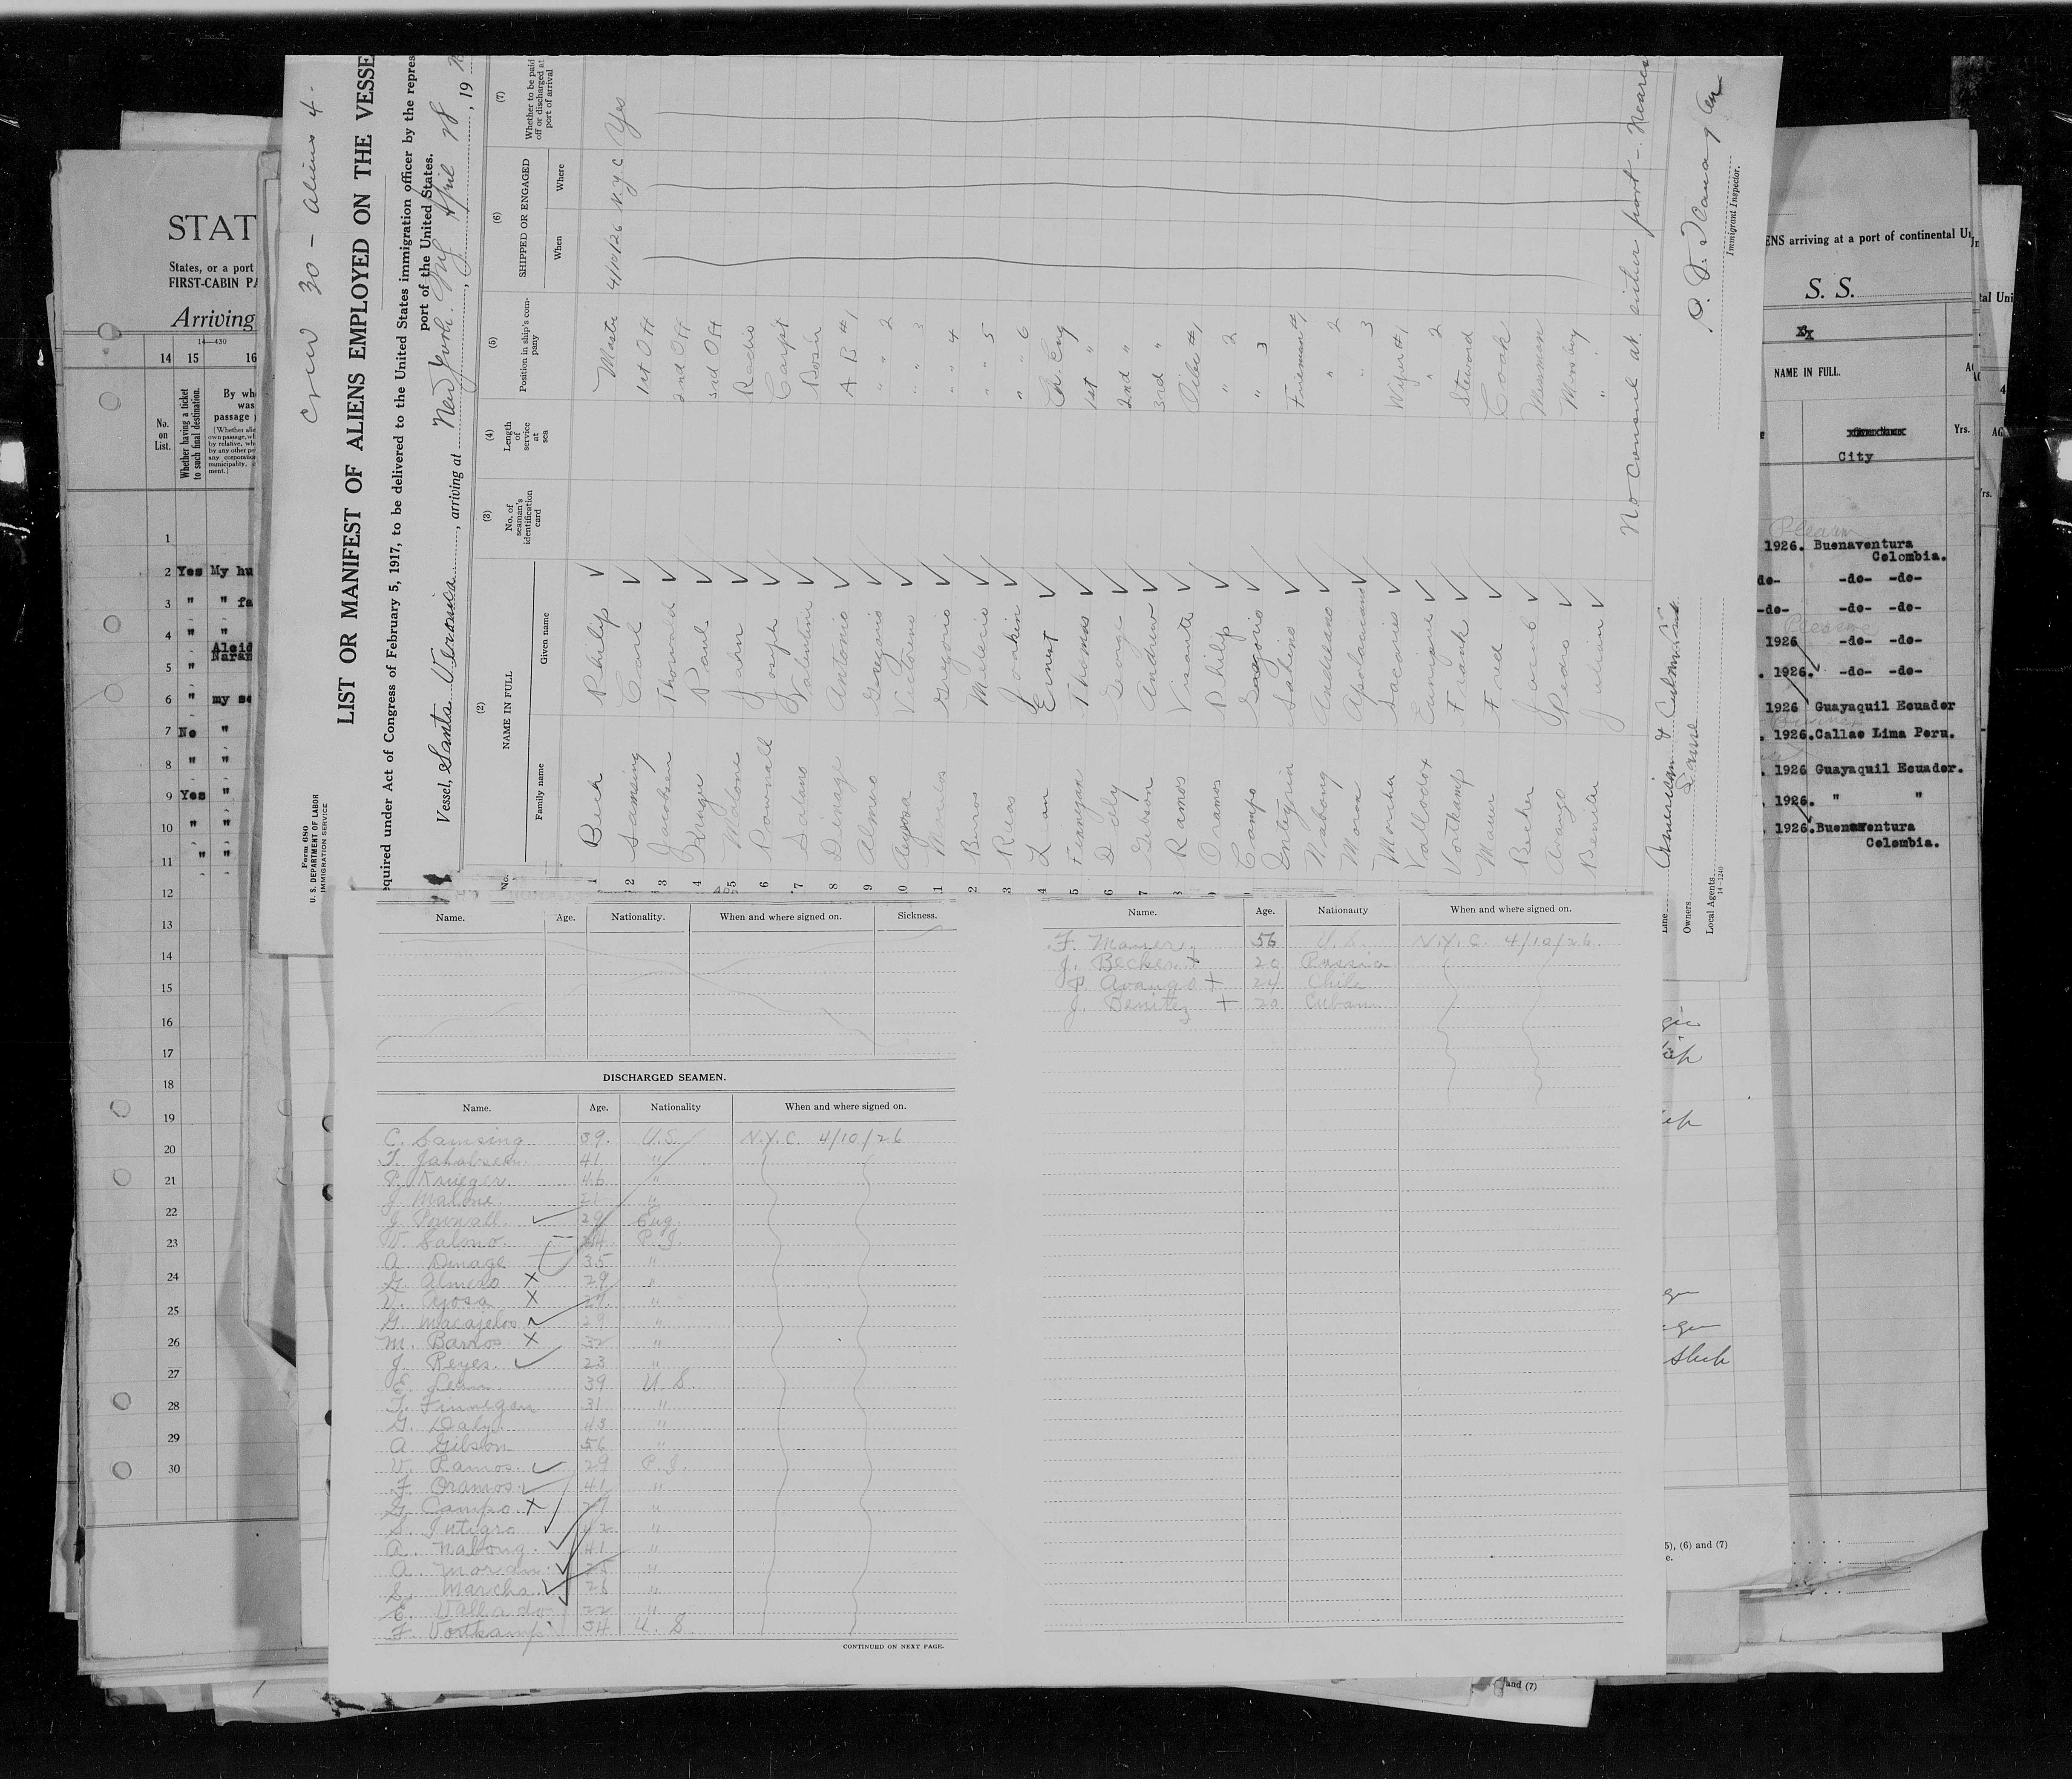 Crew 30 - Aliens 4 -
Form 680
U. S. DEPARTMENT OF LABOR
IMMIGRATION SERVICE
LIST OR MANIFEST OF ALIENS EMPLOYED ON THE VESSE
equired under Act of Congress of February 5, 1917, to be delivered to the United States immigration officer by the repres
port of the United States.
Vessel, Santa Veronica, arriving at New York. April 28, 19
No.
(2)
NAME IN FULL
Family name
Given name
(3)
No. of seaman's identification card
(4)
Length of service at sea
(5)
Position in ship's company
(6)
SHIPPED OR ENGAGED
When
Where
(7)
Whether to be paid off or discharged at port of arrival
1 Beck Philip Master 4/10/26 N.Y.C Yes
2 Samsing Carl 1st Off
3 Jacobsen Thorwald 2nd Off
4 Kruger Paul 3rd Off
5 Malone John Radio
6 Pownall Joseph Carpt
7 Salano Valentine Bosn
8 Denage Antonio A B #1
9 Almeo Gregorio " 2
10 Victorino " " 3
11 Gregorio " " 4
2 Burros Melecio " " 5
3 Reas Joakin " " 6
4 Lan Ernest Ch. Eng
5 Finnigan Thomas 1st "
6 Daly George 2nd "
7 Gibson Andrew 3rd "
8 Ramos Visante Oiler #1
9 Oramos Philip " 2
Campo Gregorio " 3
Sabino Fireman #1
Nabong Andreano " 2
Moran 3
Morcha Wiper #1
Vallodox " 2
Vortkamp Frank Steward
Maur Fred Cook
Becker Jacob Messman
Avango Pedro Messboy
Beniter Julian " "
No Consul at either port - Neares
Line American & Cuban
Owners Same
Local Agents
14-1240
Immigrant Inspector.
STAT
States, or a port
FIRST-CABIN PA
Arriving
14-430
14 15 16
No. on List.
Whether having a ticket to such final destination.
By wh
was
passage
1
2 Yes My hu
3 " " fa
4 " "
5 "
6 " my
7 No "
8 " "
9 Yes "
10 " "
11 " "
12
13
14
15
16
17
18
19
20
21
22
23
24
25
26
27
28
29
30
ENS arriving at a port of continental Un
S. S.
NAME IN FULL.
City
Yrs.
1926. Buenaventura
Colombia.
-do- -do-
-do- -do- -do-
1926 -do- -do-
1926. -do- -do-
1926 Guayaquil Ecuador
1926. Callao Lima Peru.
1926 Guayaquil Ecuador.
1926. " "
1926. Buenaventura
Colombia.
5), (6) and (7)
and (7)
Name. Age. Nationality. When and where signed on. Sickness.
DISCHARGED SEAMEN.
Name. Age. Nationality When and where signed on.
C. Samsing 39. U.S. N.Y.C. 4/10/26
T. Jakobsen 41 "
P. Krueger 46 "
J. Malone 21 "
J. Pownall 29 Eng.
V. Salono P.I.
A. Dinage 35 "
G. Almero X 29 "
V. Ayosa X "
G. Macajelos 29 "
M. Barros X 32 "
J. Reyes 23 "
E. Lean 39 U.S.
T. Finnegan 31 "
G. Daly 43 "
A Gilson 56 "
V. Ramos 29 P.I.
F. Oramos 41 "
G. Campo X "
S. Intigro 42 "
A. Nabong 41 "
A. Moran "
S. Marcha 26 "
E. Vallado 22 "
F. Vortkamp 34 U.S.
CONTINUED ON NEXT PAGE.
Name. Age. Nationality When and where signed on.
F. Maurer 56 U.S. N.Y.C. 4/10/26
J. Becker + 20 Russia
P. Avango + 24 Chile
J. Benitez + 20 Cuban